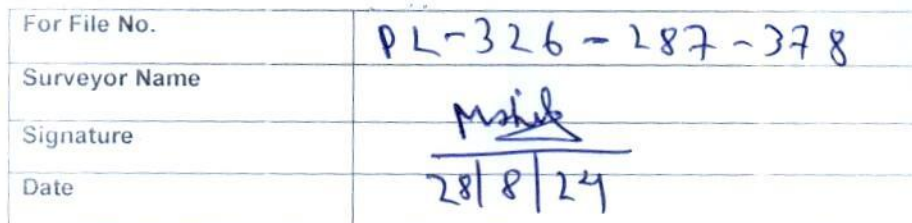 For File No. PL-326-287-378
Surveyor Name
Signature
Date 28/8/24